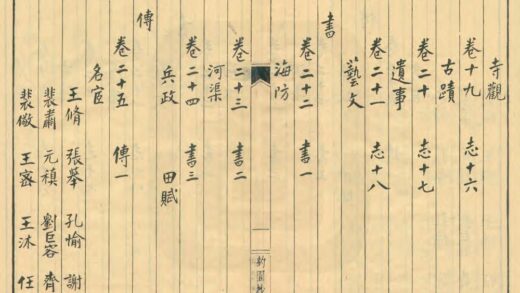 寺觀
卷十九 志十六
古蹟
卷二十 志十七
遺事
卷二十一 志十八
藝文
書
卷二十二 書一
海防
卷二十三 書二
河渠
卷二十四 書三
兵政 田賦
傳
卷二十五 傳一
名宦
王脩 張舉 孔愉 謝
裴肅 元稹 劉巨容 齊
裴儆 王密 王沐 任
約園